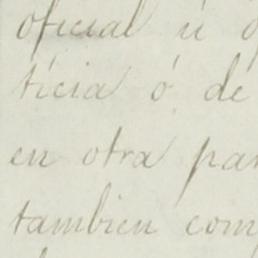 oficial ú
ticia ó de
en otra par
tambien com